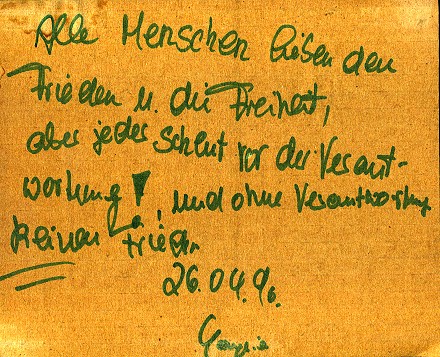 Alle Menschen lieben den
Frieden u. die Freiheit,
aber jeder scheut vor der Verant-
wortung!, und ohne Verantwortung
keinen Frieden
26.04.96.